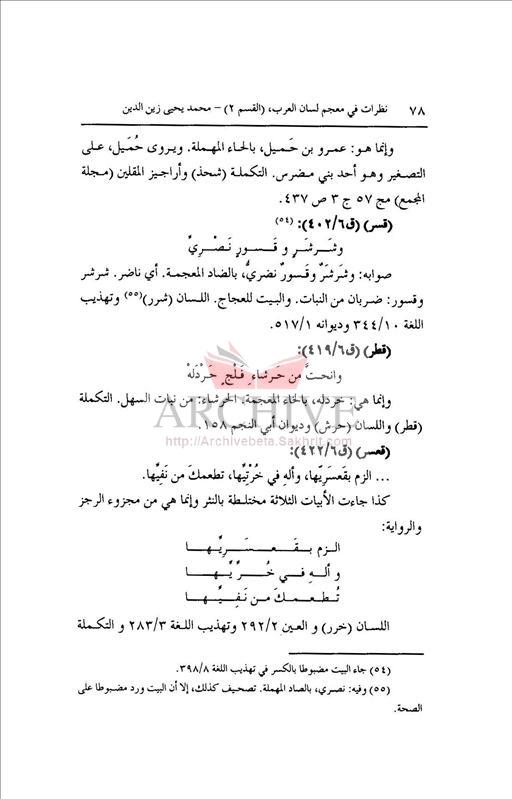 ٧٨ نظرات في معجم لسان العرب، (القسم ٢) – محمد يحيى زين الدين
وإنما هو: عمرو بن حَميل، بالحاء المهملة. ويروى حُمَيل، على
التصغير وهو أحد بني مضرس. التكملة (شحذ) وأراجيز المقلين (مجلة
المجمع) مج ٥٧ ج ٣ ص ٤٣٧.
(قسر) (ق٤٠٢/٦): (٥٤)
وشَرشَرٍ و قَسورٍ نَصْرِيِّ
صوابه: وشَرشَرٌ وقَسورٌ نضريُّ، بالضاد المعجمة. أي ناضر. شرشر
وقسور: ضربان من النبات. والبيت للعجاج. اللسان (شرر)(٥٥) وتهذيب
اللغة ٣٤٤/١٠ وديوانه ٥١٧/١.
(قطر) (ق٤١٩/٦):
وانحتَّ من حَرشاءِ فَلْجٍ حَرْدَلُهْ
وإنما هي: خردله، بالخاء المعجمة. الحرشاء: من نبات السهل. التكملة
(قطر) واللسان (حرش) وديوان أبي النجم ١٥٨.
ARCHIVE
http://Archivebeta.Sakhrit.com
(قعسر) (ق٤٢٢/٦):
... الزم بقَعسَرِيّها، وألهِ في خُرْتِيِّها، تطعمكَ من نَفيِّها.
كذا جاءت الأبيات الثلاثة مختلطة بالنثر وإنما هي من مجزوء الرجز
والرواية:
الـزم بـقَـعـسَـرِيِّـهـا
و ألـهِ فـي خُـرِّيِّـهـا
تُـطـعـمـكَ من نَـفـيِّـهـا
اللسان (خرر) و العين ٢٩٢/٢ وتهذيب اللغة ٢٨٣/٣ و التكملة
(٥٤) جاء البيت مضبوطا بالكسر في تهذيب اللغة ٣٩٨/٨.
(٥٥) وفيه: نصري، بالصاد المهملة. تصحيف كذلك، إلا أن البيت ورد مضبوطا على
الصحة.